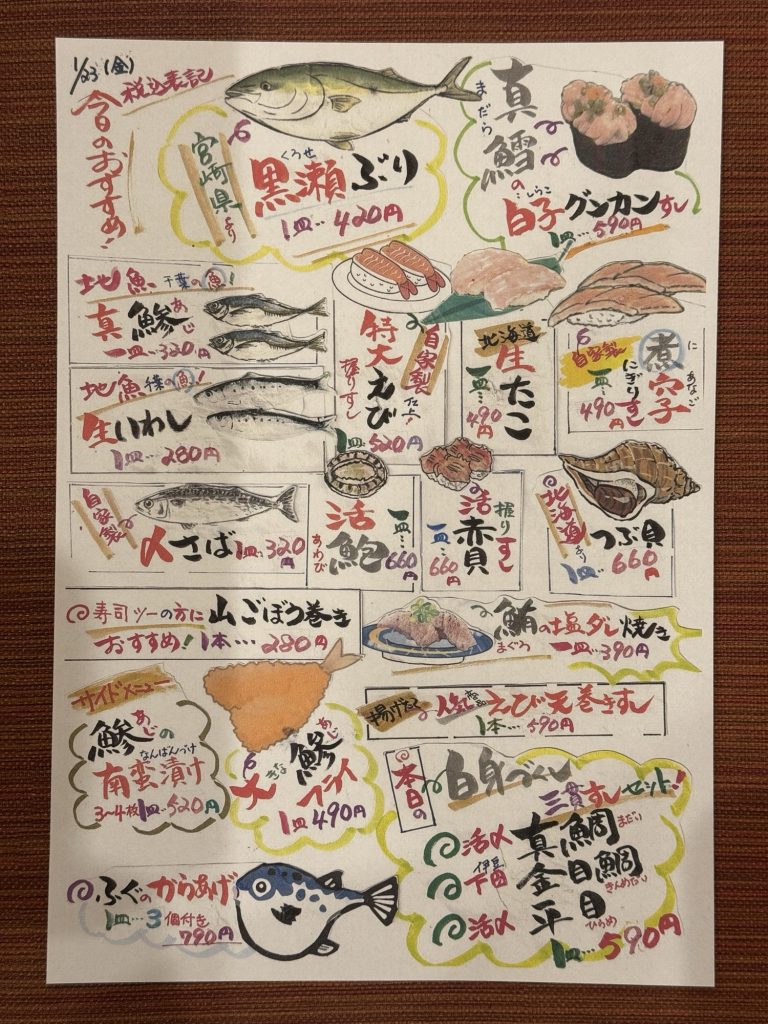 1/23(金)
税込表記
今日のおすすめ!
宮崎県より
くろせ
黒瀬ぶり
1皿…420円
まだら
真鱈の
しらこ
白子グンカンすし
1皿…590円
地魚 千葉の魚!
あじ
真鯵
一皿…320円
地魚 千葉の魚!
生いわし
1皿…280円
自家製仕上!
特大えび
握りすし
1皿…520円
北海道
生たこ
一皿…490円
自家製
煮穴子
に あなご
にぎりすし
一皿…490円
自家製
〆さば 1皿…320円
活鮑
あわび
一皿…660円
握りすし
活赤貝
一皿…660円
北海道より
つぶ貝
1皿…660円
寿司ツーの方に 山ごぼう巻き
おすすめ! 1本…280円
鮪の塩ダレ焼き
まぐろ
一皿…390円
揚げたて 人気商品 えび天巻きすし
1本…590円
サイドメニュー
あじ
鯵の
なんばんづけ
南蛮漬け
3〜4枚 1皿…520円
あじ
大きな鯵
フライ
1皿490円
本日の
白身づくし
三貫すしセット!
活〆 真鯛 まだい
伊豆下田 金目鯛 きんめだい
活〆 平目 ひらめ
1皿…590円
ふぐのからあげ
1皿…3個付き
790円